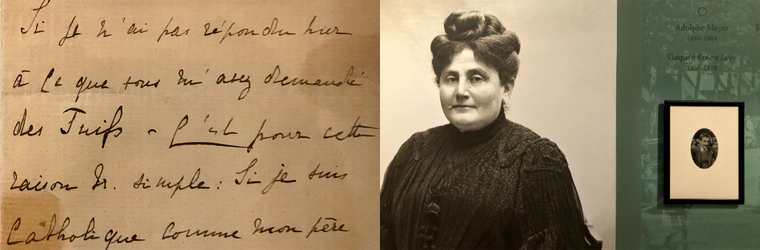 Si je n'ai pas répondu hier
à ce que vous m'avez demandé
des Juifs - C'est pour cette
raison tr. simple : Si je suis
Catholique comme mon père
Adolphe Meyer
Gaspard Ernest Levy